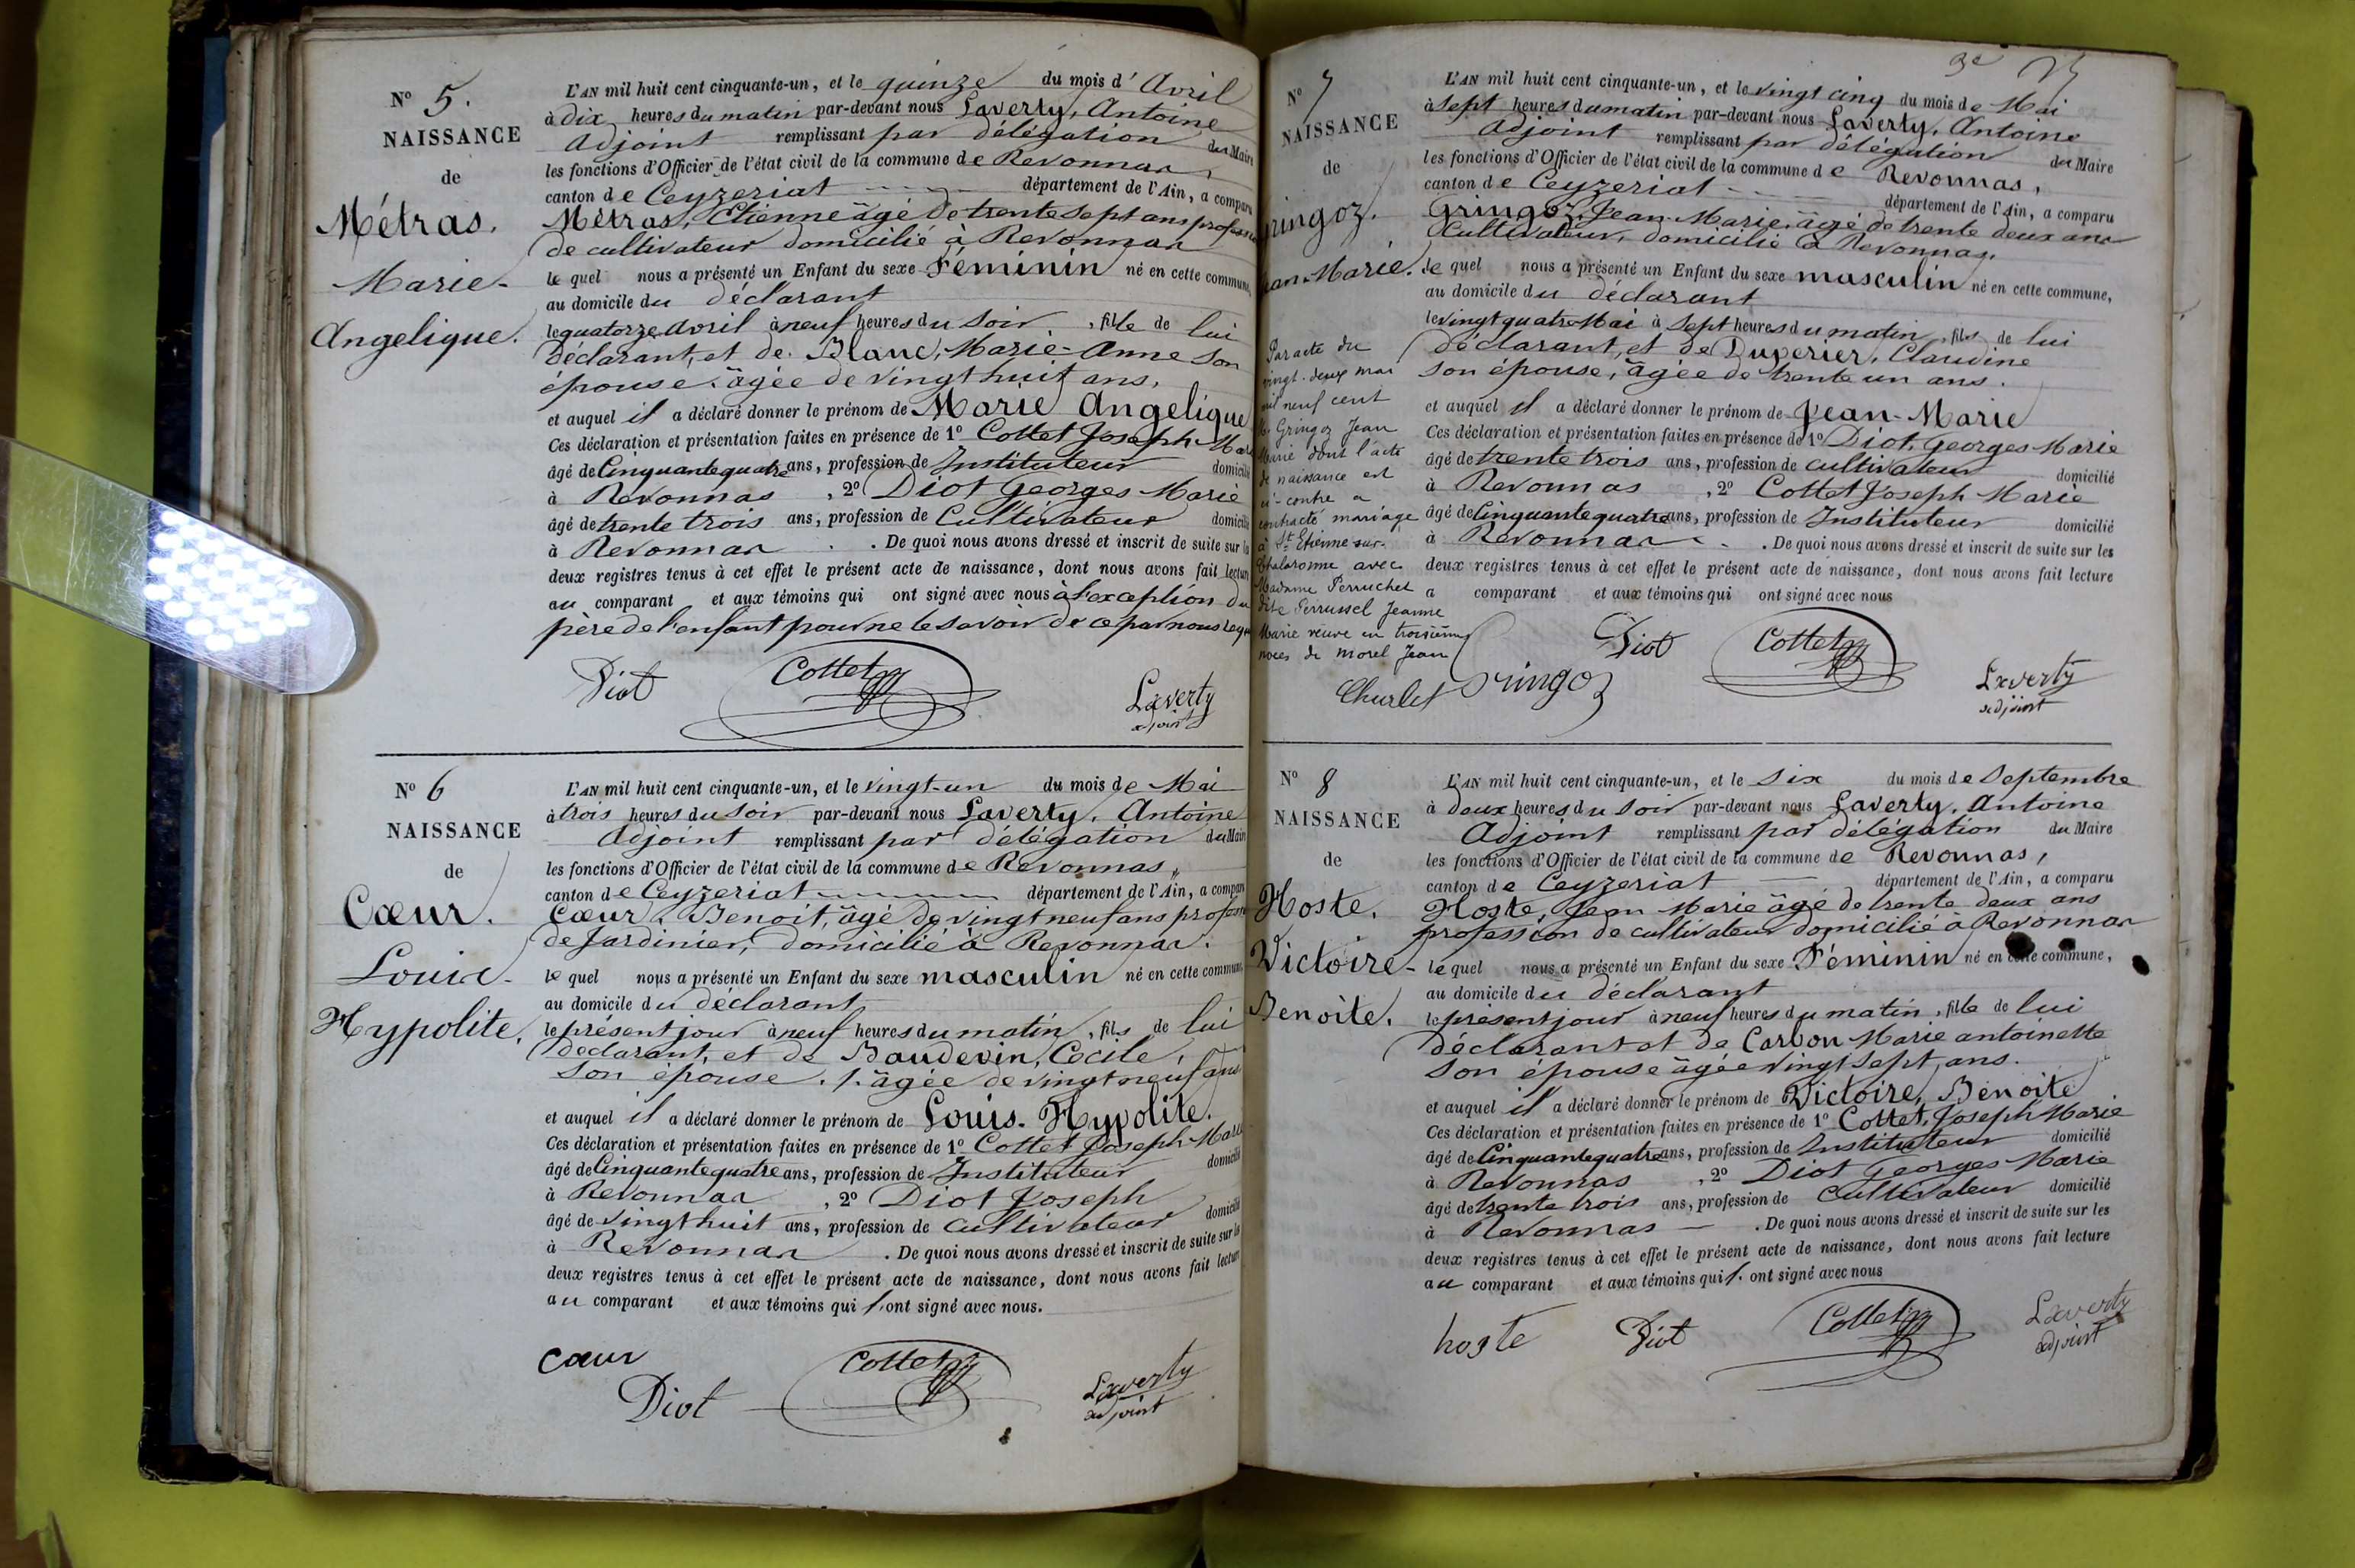 N° 5.
NAISSANCE
de
Métras.
Marie-
Angelique.
L'AN mil huit cent cinquante-un, et le quinze du mois d'Avril
à dix heures du matin par-devant nous Laverty, Antoine
Adjoint remplissant par délégation du Maire
les fonctions d'Officier de l'état civil de la commune de Revonnas,
canton de Ceyzeriat département de l'Ain, a comparu
Métras, Etienne âgé de trente sept ans profession
de cultivateur domicilié à Revonnas
lequel nous a présenté un Enfant du sexe Féminin né en cette commune,
au domicile du déclarant
le quatorze avril à neuf heures du soir, fille de lui
déclarant, et de Blanc, Marie-Anne son
épouse âgée de vingt huit ans,
et auquel il a déclaré donner le prénom de Marie Angelique
Ces déclaration et présentation faites en présence de 1° Cottet Joseph-Marie
âgé de Cinquante quatre ans, profession de Instituteur domicilié
à Revonnas, 2° Diot Georges Marie
âgé de trente trois ans, profession de Cultivateur domicilié
à Revonnas. De quoi nous avons dressé et inscrit de suite sur les
deux registres tenus à cet effet le présent acte de naissance, dont nous avons fait lecture
au comparant et aux témoins qui ont signé avec nous à l'exception du
père de l'enfant pour ne le savoir de ce par nous requis
Diot Cottet Laverty
adjoint
N° 6
NAISSANCE
de
Cœur.
Louis-
Hypolite.
L'AN mil huit cent cinquante-un, et le vingt-un du mois de Mai
à trois heures du soir par-devant nous Laverty, Antoine
Adjoint remplissant par délégation du Maire
les fonctions d'Officier de l'état civil de la commune de Revonnas,
canton de Ceyzeriat département de l'Ain, a comparu
Cœur, Benoit, âgé de vingt neuf ans profession
de Jardinier, domicilié à Revonnas.
lequel nous a présenté un Enfant du sexe masculin né en cette commune,
au domicile du déclarant
le présent jour à neuf heures du matin, fils de lui
declarant, et de Baudevin, Cécile,
son épouse, âgée de vingt neuf ans
et auquel il a déclaré donner le prénom de Louis-Hypolite.
Ces déclaration et présentation faites en présence de 1° Cottet Joseph-Marie
âgé de Cinquante quatre ans, profession de Instituteur domicilié
à Revonnas, 2° Diot Joseph
âgé de vingt huit ans, profession de cultivateur domicilié
à Revonnas. De quoi nous avons dressé et inscrit de suite sur les
deux registres tenus à cet effet le présent acte de naissance, dont nous avons fait lecture
au comparant et aux témoins qui ont signé avec nous.
cœur
Diot Cottet Laverty
adjoint
N° 7
NAISSANCE
de
Gringoz.
Jean-Marie.
L'AN mil huit cent cinquante-un, et le vingt cinq du mois de Mai
à sept heures du matin par-devant nous Laverty, Antoine
Adjoint remplissant par délégation du Maire
les fonctions d'Officier de l'état civil de la commune de Revonnas,
canton de Ceyzeriat département de l'Ain, a comparu
Gringoz, Jean-Marie, âgé de trente deux ans
Cultivateur, domicilié à Revonnas,
lequel nous a présenté un Enfant du sexe masculin né en cette commune,
au domicile du déclarant
le vingt quatre Mai à sept heures du matin, fils de lui
déclarant, et de Duperier, Claudine
son épouse, âgée de trente un ans.
et auquel il a déclaré donner le prénom de Jean-Marie
Ces déclaration et présentation faites en présence de 1° Diot, Georges Marie
âgé de trente trois ans, profession de cultivateur domicilié
à Revonnas, 2° Cottet Joseph Marie
âgé de Cinquante quatre ans, profession de Instituteur domicilié
à Revonnas. De quoi nous avons dressé et inscrit de suite sur les
deux registres tenus à cet effet le présent acte de naissance, dont nous avons fait lecture
a comparant et aux témoins qui ont signé avec nous
Par acte du
vingt-deux mai
mil neuf cent
Gringoz Jean
Marie dont l'acte
de naissance est
ci-contre a
contracté mariage
à St Etienne sur-
Chalaronne avec
Madame Perruchet
dite Perrussel Jeanne
Marie veuve en troisièmes
noces de Morel Jean
Charlet Gringoz Diot Cottet Laverty
adjoint
N° 8
NAISSANCE
de
Hoste.
Victoire-
Benoite.
L'AN mil huit cent cinquante-un, et le six du mois de Septembre
à deux heures du soir par-devant nous Laverty, Antoine
Adjoint remplissant par délégation du Maire
les fonctions d'Officier de l'état civil de la commune de Revonnas,
canton de Ceyzeriat département de l'Ain, a comparu
Hoste, Jean Marie âgé de trente deux ans
profession de cultivateur domicilié à Revonnas
lequel nous a présenté un Enfant du sexe Féminin né en cette commune,
au domicile du déclarant
le présent jour à neuf heures du matin, fille de lui
déclarant et de Carbon Marie antoinette
son épouse âgée vingt sept ans.
et auquel il a déclaré donner le prénom de Victoire, Benoite
Ces déclaration et présentation faites en présence de 1° Cottet, Joseph Marie
âgé de Cinquante quatre ans, profession de Instituteur domicilié
à Revonnas, 2° Diot Georges Marie
âgé de trente trois ans, profession de Cultivateur domicilié
à Revonnas. De quoi nous avons dressé et inscrit de suite sur les
deux registres tenus à cet effet le présent acte de naissance, dont nous avons fait lecture
au comparant et aux témoins qui ont signé avec nous
hoste Diot Cottet Laverty
adjoint